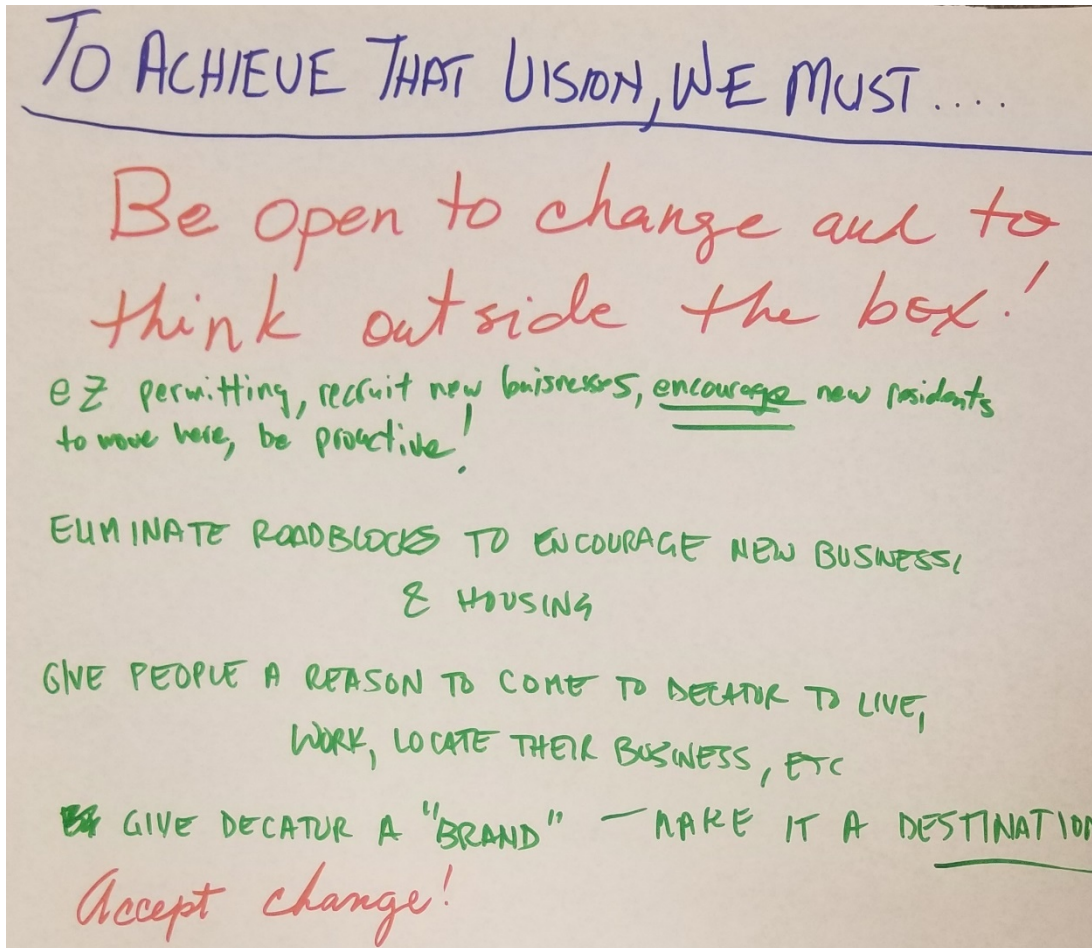 TO ACHIEVE THAT VISION, WE MUST....
Be open to change and to
think outside the box!
eZ permitting, recruit new buisnesses, encourage new residents
to move here, be proactive!
ELIMINATE ROADBLOCKS TO ENCOURAGE NEW BUSINESS,
& HOUSING
GIVE PEOPLE A REASON TO COME TO DECATOR TO LIVE,
WORK, LOCATE THEIR BUSINESS, ETC
GIVE DECATUR A "BRAND" - MAKE IT A DESTINATION
Accept change!